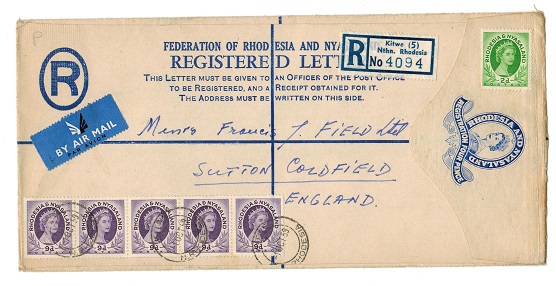 FEDERATION OF RHODESIA AND NYASALAND
REGISTERED LETTER
THIS LETTER MUST BE GIVEN TO AN OFFICER OF THE POST OFFICE
TO BE REGISTERED, AND A RECEIPT OBTAINED FOR IT.
THE ADDRESS MUST BE WRITTEN ON THIS SIDE.
R
R
Kitwe (5)
Nthn. Rhodesia
No 4094
RHODESIA AND NYASALAND
2d
RHODESIA AND NYASALAND
REGISTRATION FOUR PENCE
BY AIR MAIL
PAR AVION
Messrs Francis J. FIELD Ltd
SUTTON COLDFIELD
ENGLAND.
RHODESIA & NYASALAND
9d
RHODESIA & NYASALAND
9d
RHODESIA & NYASALAND
9d
RHODESIA & NYASALAND
9d
RHODESIA & NYASALAND
9d